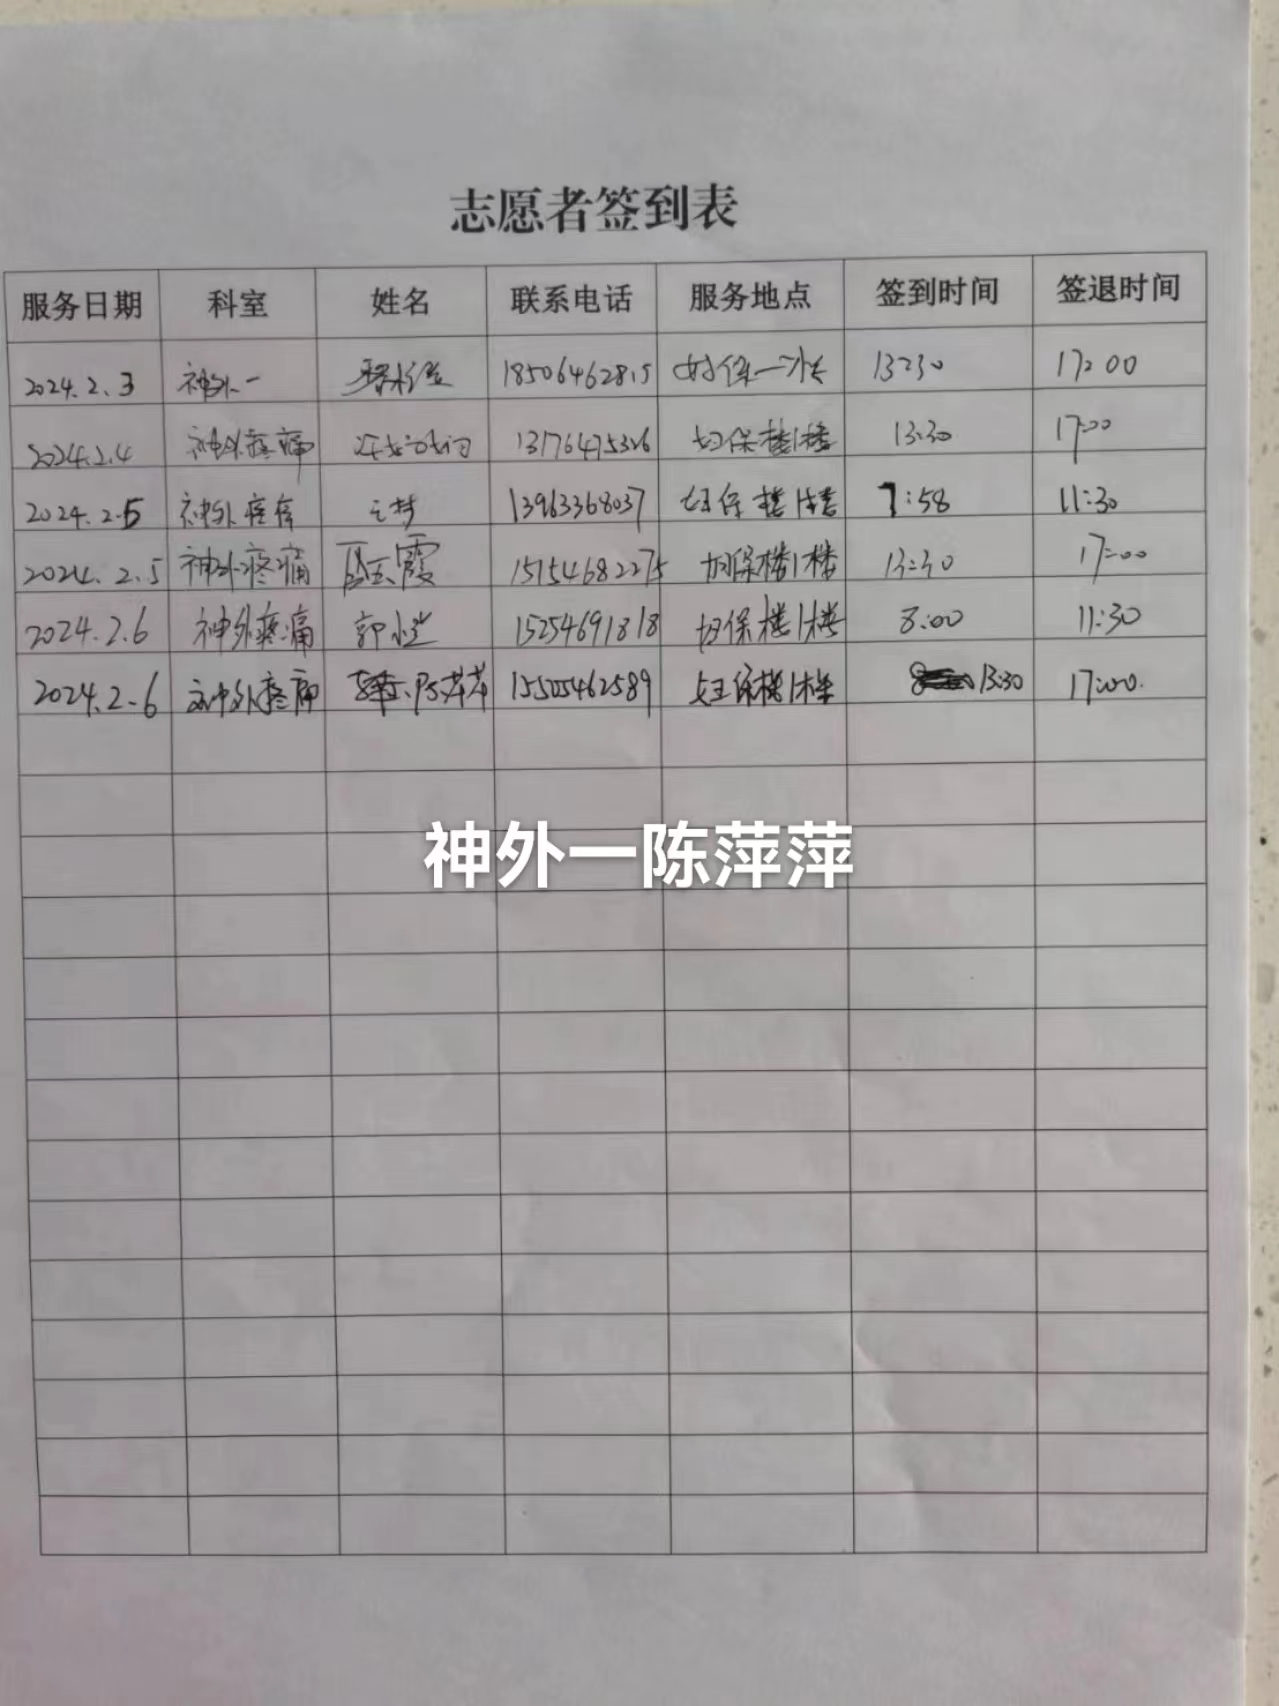 志愿者签到表
服务日期 科室 姓名 联系电话 服务地点 签到时间 签退时间
2024.2.3 神外一 18506462815 妇保一楼 13:30 17:00
2024.2.4 神外疼痛 13176475326 妇保楼1楼 13:30 17:00
2024.2.5 神外疼痛 13963368037 妇保楼1楼 7:58 11:30
2024.2.5 神外疼痛 霞 15154682275 妇保楼1楼 13:30 17:00
2024.2.6 神外疼痛 郭小兰 15254691818 妇保楼1楼 8:00 11:30
2024.2.6 神外疼痛 陈萍萍 15505462589 妇保楼1楼 13:30 17:00
神外一陈萍萍